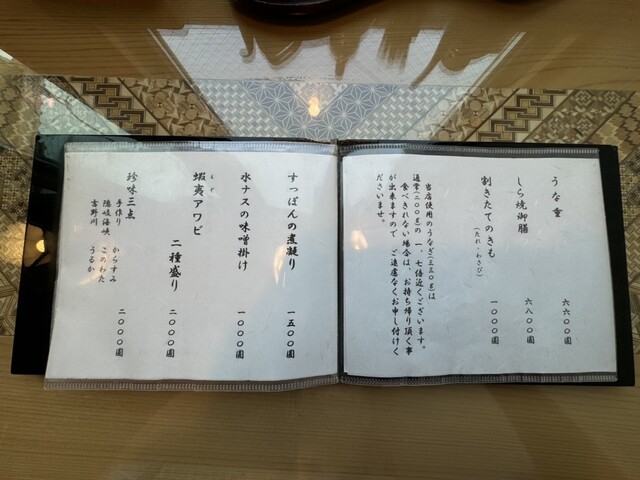 うな重 六六〇〇圓
しら焼御膳 六八〇〇圓
割きたてのきも 一〇〇〇圓
(たれ・わさび)
当店使用のうなぎ(三三〇g)は
通常(二〇〇g)の 一、七倍近くございます。
食べきれない場合は、お持ち帰り頂く事
が出来ますので ご遠慮なくお申し付けく
ださいませ。
すっぽんの煮凝り 一五〇〇圓
水ナスの味噌掛け 一〇〇〇圓
えぞ
蝦夷アワビ 二種盛り 二〇〇〇圓
珍味三点 二〇〇〇圓
手作り からすみ
隠岐海峡 このわた
吉野川 うるか